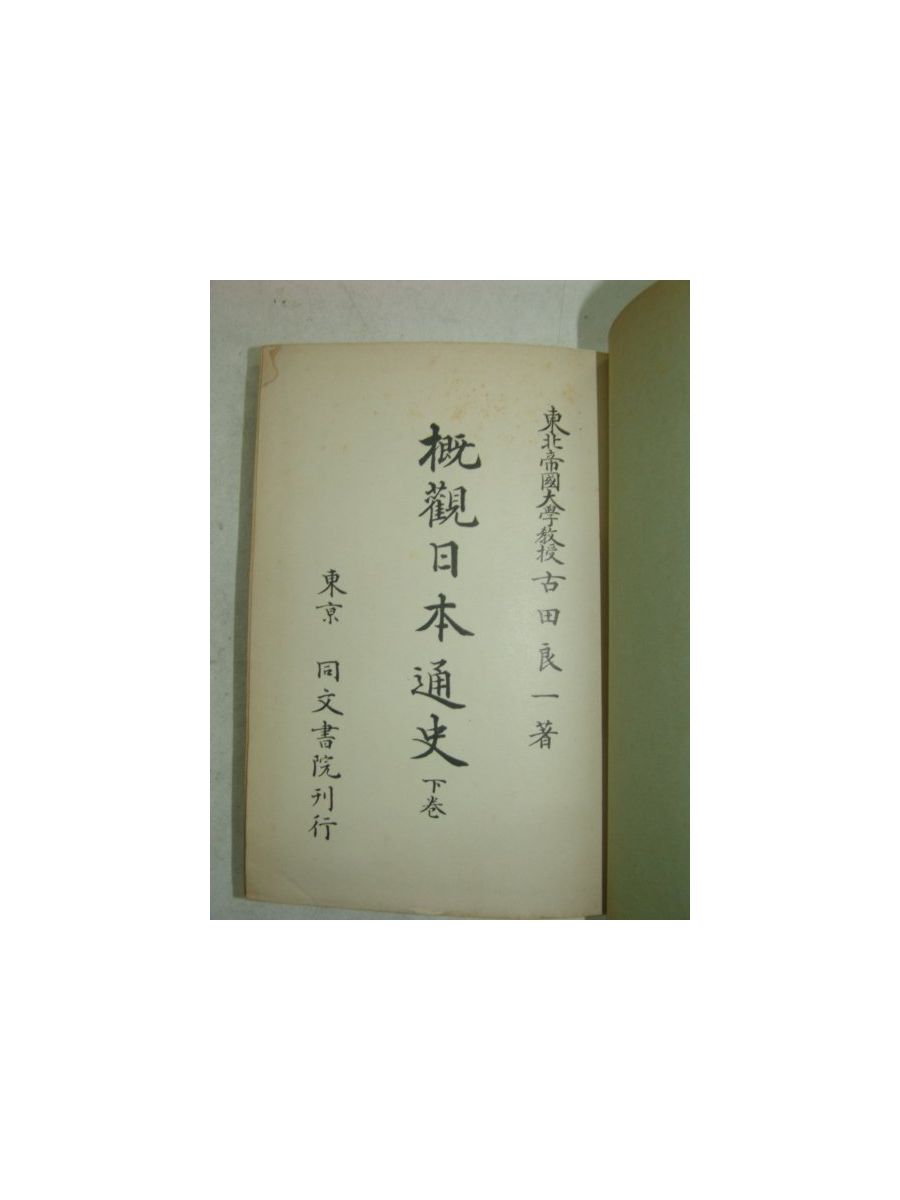 東北帝國大學教授古田良一著
概觀日本通史下卷
東京 同文書院刊行